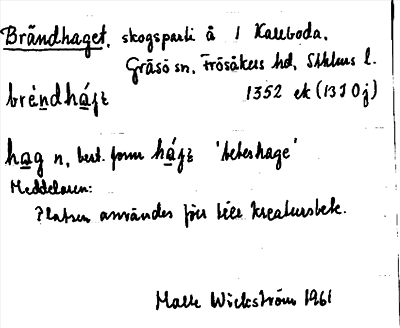 Brändhaget, skogsparti å 1 Kalvboda,
Gräsö sn, Frösåkers hd, Sthlms l.
bränndhájt 1352 ek (13I 0j)
hag n, best. form hájt 'beteshage'
Meddelaren:
Platsen användes förr till kreatursbete.
Malte Wickström 1961